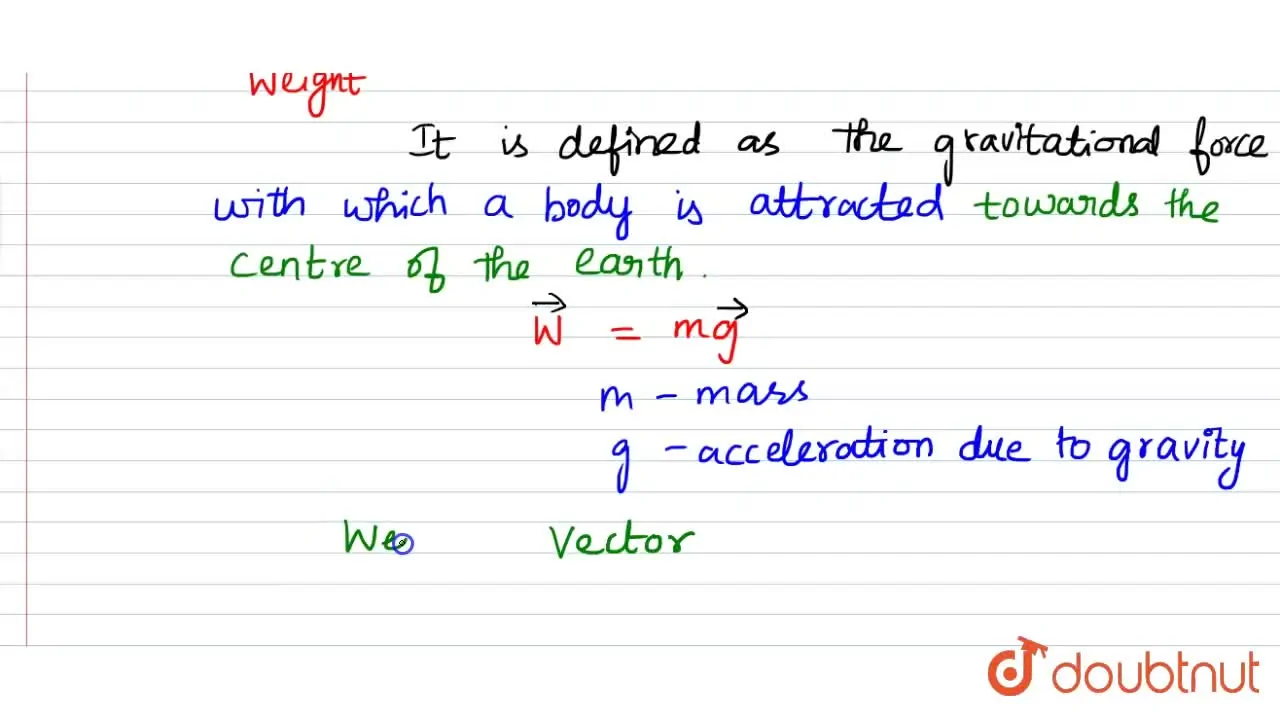 Weight
It is defined as the gravitational force
with which a body is attracted towards the
centre of the earth.
W = mg
m - mass
g - acceleration due to gravity
We Vector
doubtnut